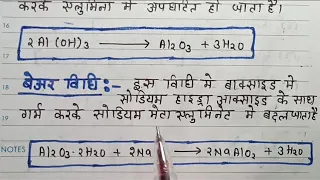 करके एलुमिना में अपघटित हो जाता है।
16
2Al(OH)3 ⟶ Al2O3 + 3H2O
17
18
बेअर विधि :- इस विधि में बाक्साइड में
सोडियम हाइड्रा आक्साइड के साथ
19 गर्म करके सोडियम मेटा एलुमिनेट में बदल जाता है
NOTES
Al2O3·2H2O + 2Na ⟶ 2NaAlO2 + 3H2O